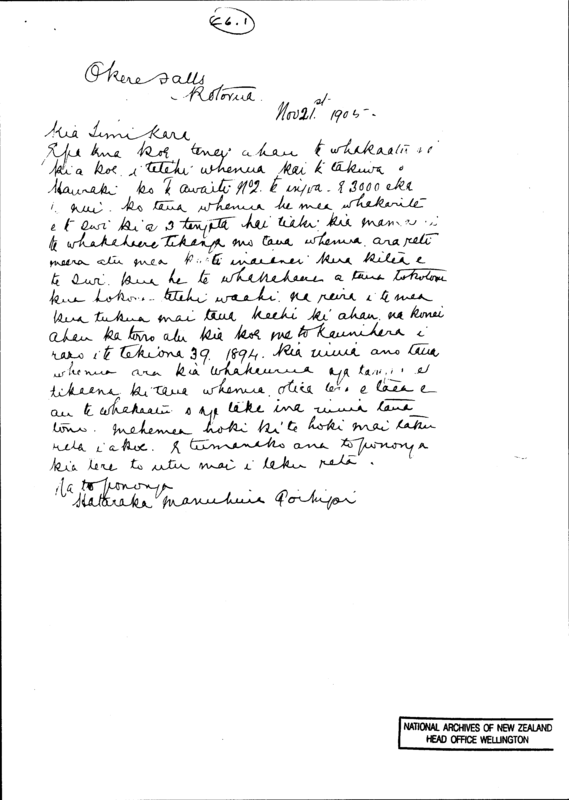 E6.1
Okere Falls
Rotorua
Nov 21st 1905-
Kia Timi Kara
E pa tena koe tenei ahau te whakaatu
kia koe i tetehi whenua kai te takiwa o
Hauraki ko te awaiti No2. te ingoa. E 3000 eka
nui. ko taua whenua he mea whakarite
e te Iwi kia 3 tangata hai tiaki kia mama
te whakahaere tikanga mo taua whenua, ara reti
meera atu mea inaianei kua kitea e
te Iwi. kua he te whakahaere a taua tokotoru
kua hoko tetehi waahi. na reira i te mea
kua tukua mai taua keehi ki ahau. na konei
ahau ka tono atu kia koe me to kaunihera i
raro i te tekiona 39. 1894. kia uiuia ano taua
whenua ara kia whakauruа nga
tikaena ki taua whenua otira e taea e
au te whakaatu o nga take ina uiuia taua
tono. mehemea hoki ki te hoki mai taku
reta i a koe. E tumanako ana to pononga
kia tere to utu mai i taku reta.
Na to pononga
Hataraka Manuhuia Poihipi
NATIONAL ARCHIVES OF NEW ZEALAND
HEAD OFFICE WELLINGTON